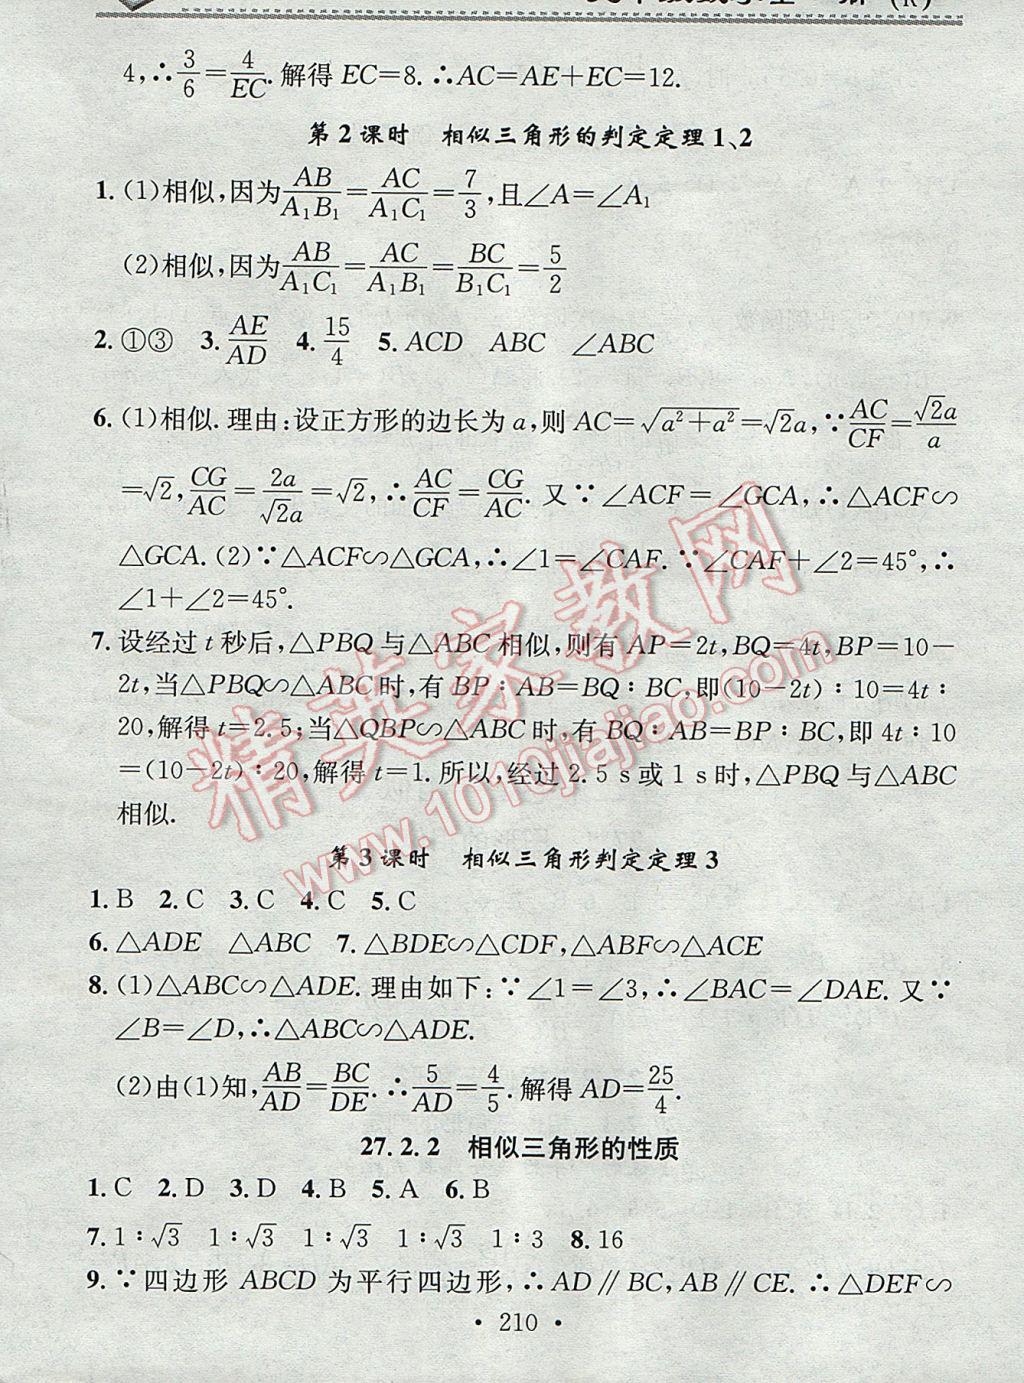 4,∴3/6=4/EC.解得EC=8.∴AC=AE+EC=12.
第2课时 相似三角形的判定定理1、2
1.(1)相似,因为AB/A₁B₁=AC/A₁C₁=7/3,且∠A=∠A₁
(2)相似,因为AB/A₁C₁=AC/A₁B₁=BC/B₁C₁=5/2
2.①③ 3.AE/AD 4.15/4 5.ACD ABC ∠ABC
6.(1)相似.理由:设正方形的边长为a,则AC=√(a²+a²)=√2a,∵AC/CF=√2a/a
=√2,CG/AC=2a/√2a=√2,∴AC/CF=CG/AC.又∵∠ACF=∠GCA,∴△ACF∽
△GCA.(2)∵△ACF∽△GCA,∴∠1=∠CAF.∵∠CAF+∠2=45°,∴
∠1+∠2=45°.
7.设经过t秒后,△PBQ与△ABC相似,则有AP=2t,BQ=4t,BP=10-
2t,当△PBQ∽△ABC时,有BP∶AB=BQ∶BC,即(10-2t)∶10=4t∶
20,解得t=2.5;当△QBP∽△ABC时,有BQ∶AB=BP∶BC,即4t∶10
=(10-2t)∶20,解得t=1.所以,经过2.5 s或1 s时,△PBQ与△ABC
相似.
第3课时 相似三角形判定定理3
1.B 2.C 3.C 4.C 5.C
6.△ADE △ABC 7.△BDE∽△CDF,△ABF∽△ACE
8.(1)△ABC∽△ADE.理由如下:∵∠1=∠3,∴∠BAC=∠DAE.又∵
∠B=∠D,∴△ABC∽△ADE.
(2)由(1)知,AB/AD=BC/DE.∴5/AD=4/5.解得AD=25/4.
27.2.2 相似三角形的性质
1.C 2.D 3.D 4.B 5.A 6.B
7.1∶√3 1∶√3 1∶√3 1∶√3 1∶3 8.16
9.∵四边形ABCD为平行四边形,∴AD∥BC,AB∥CE.∴△DEF∽
·210·
精英家教网
www.1010jiajiao.com